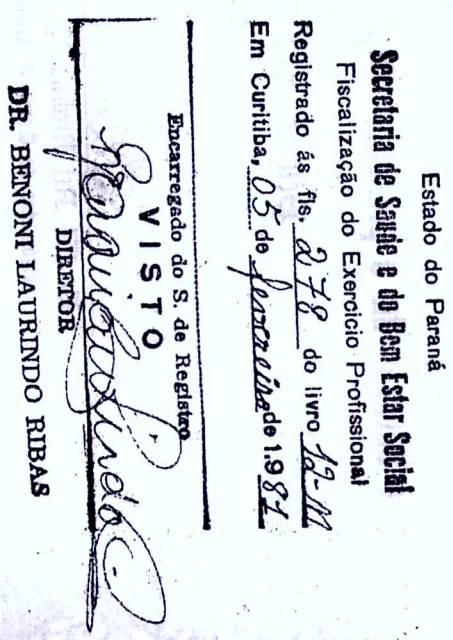 Estado do Paraná
Secretaria de Saude e do Bem Estar Social
Fiscalização do Exercicio Profissional
Registrado ás fls. 278 do livro 12-M
Em Curitiba, 05 de fevereiro de 1.981
Encarregado do S. de Registro
VISTO
DIRETOR
DR. BENONI LAURINDO RIBAS